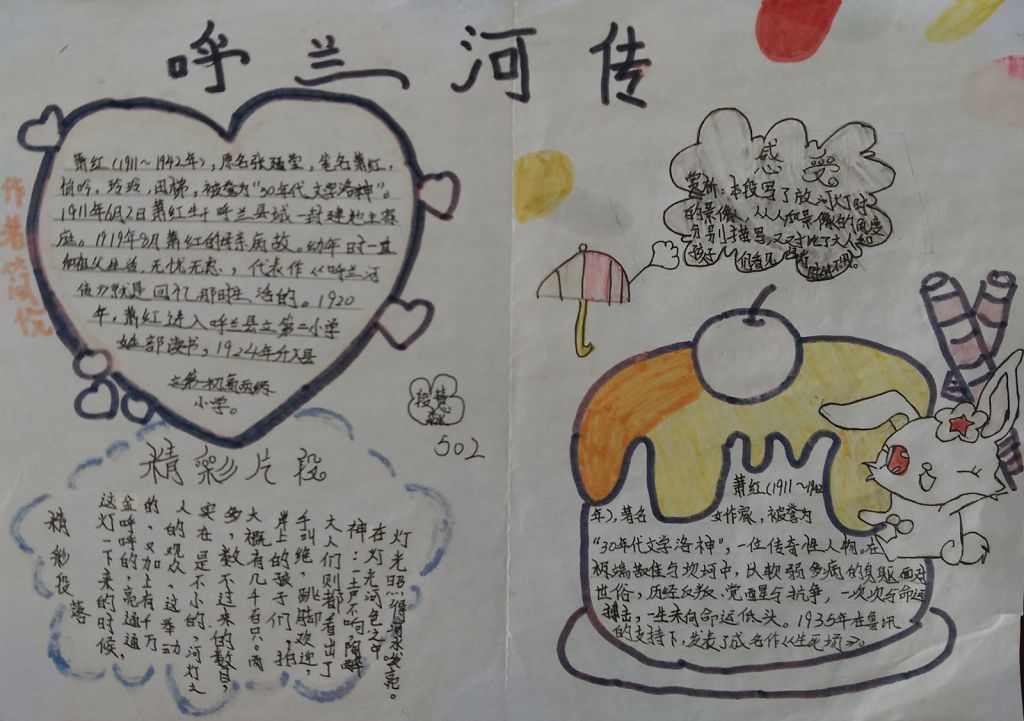 呼兰河传
作者简悦
萧红(1911～1942年),原名张廼莹,笔名萧红,
悄吟,玲玲,田娣,被誉为"30年代文学洛神"。
1911年6月2日萧红生于呼兰县城一封建地主家
庭。1919年8月萧红的母亲病故。幼年时一直
和祖父生活,无忧无虑,代表作《呼兰河
传》就是回忆那时生活的。1920
年,萧红进入呼兰县立第二小学
女部读书,1924年升入县
立第一初高两级
小学。
502
感受
赏析:本段写了放河灯时
的景像,从人和景像的角度
分别描写,又对比了大人和
孩子们看见
时的不同。
精彩片段
精彩段落
灯光照得河水幽幽亮。
在灯光河色之中
神;一声不响,陶醉
大人们则都看出了
手叫绝,跳脚欢迎,
岸上的孩子们,拍
大概有几千百只。两
多,数不过来的数目,
实在是不小的,河灯之
人的观众,这举动
的,又加上有千万
金呼呼的,亮通通
这灯一下来的时候,
萧红(1911～1942
年),著名女作家,被誉为
"30年代文学洛神",一位传奇性人物。在
极端苦难与坎坷中,以软弱多病的身躯面对
世俗,历经反叛、觉醒与抗争,一次次与命运
搏击,一生未向命运低头。1935年在鲁讯
的支持下,发表了成名作《生死场》。